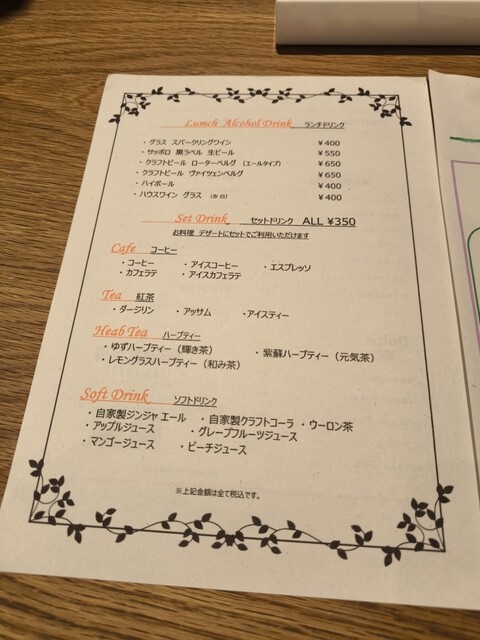 Lumch Alcohol Drink ランチドリンク
・グラス スパークリングワイン ￥400
・サッポロ 黒ラベル 生ビール ￥550
・クラフトビール ローターベルグ （エールタイプ） ￥650
・クラフトビール ヴァイツェンベルグ ￥650
・ハイボール ￥400
・ハウスワイン グラス （赤 白） ￥400
Set Drink セットドリンク ALL ¥350
お料理 デザートにセットでご利用いただけます
Cafe コーヒー
・コーヒー ・アイスコーヒー ・エスプレッソ
・カフェラテ ・アイスカフェラテ
Tea 紅茶
・ダージリン ・アッサム ・アイスティー
Heab Tea ハーブティー
・ゆずハーブティー（輝き茶） ・紫蘇ハーブティー（元気茶）
・レモングラスハーブティー（和み茶）
Soft Drink ソフトドリンク
・自家製ジンジャエール ・自家製クラフトコーラ ・ウーロン茶
・アップルジュース ・グレープフルーツジュース
・マンゴージュース ・ピーチジュース
※上記金額は全て税込です。